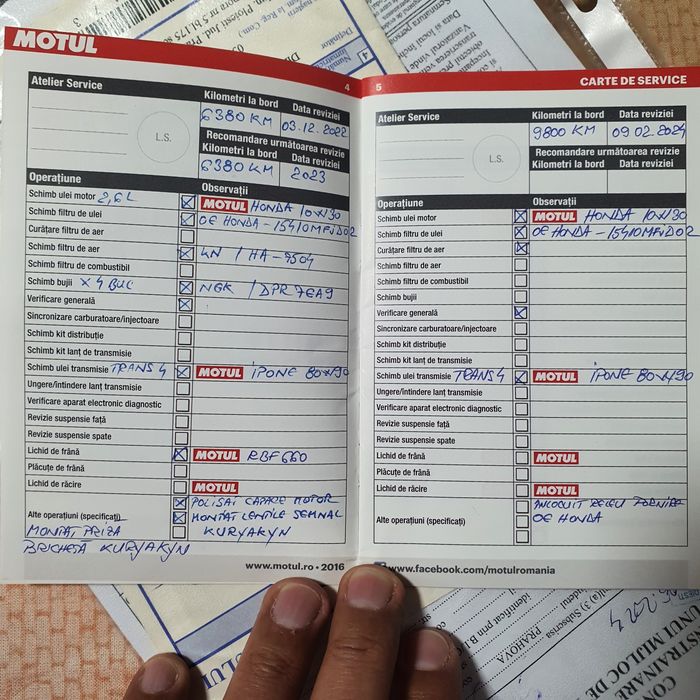 MOTUL
4
Atelier Service
Kilometri la bord
Data reviziei
6380 KM
03.12.2022
L.S.
Recomandare următoarea revizie
Kilometri la bord
Data reviziei
6380 KM
2023
Operațiune
Observații
Schimb ulei motor 2,6L
MOTUL HONDA 10W30
Schimb filtru de ulei
OE HONDA - 15410MFJD02
Curățare filtru de aer
Schimb filtru de aer
KN / HA-7504
Schimb filtru de combustibil
Schimb bujii x 4 BUC
NGK / DPR7EA9
Verificare generală
Sincronizare carburatoare/injectoare
Schimb kit distribuție
Schimb kit lanț de transmisie
Schimb ulei transmisie TRANS 4
MOTUL IPONE 80W90
Ungere/întindere lanț transmisie
Verificare aparat electronic diagnostic
Revizie suspensie față
Revizie suspensie spate
Lichid de frână
MOTUL RBF 660
Plăcuțe de frână
Lichid de răcire
MOTUL
POLISAT CAPACE MOTOR
Alte operațiuni (specificați)
MONTAT LENTILE SEMNAL
KURYAKYN
MONTAT PRIZA
BRICHETA KURYAKYN
www.motul.ro • 2016
5
CARTE DE SERVICE
Atelier Service
Kilometri la bord
Data reviziei
9800 KM
09.02.2024
L.S.
Recomandare următoarea revizie
Kilometri la bord
Data reviziei
Operațiune
Observații
Schimb ulei motor
MOTUL HONDA 10W30
Schimb filtru de ulei
OE HONDA - 15410MFJD02
Curățare filtru de aer
Schimb filtru de aer
Schimb filtru de combustibil
Schimb bujii
Verificare generală
Sincronizare carburatoare/injectoare
Schimb kit distribuție
Schimb kit lanț de transmisie
Schimb ulei transmisie TRANS 4
MOTUL IPONE 80W90
Ungere/întindere lanț transmisie
Verificare aparat electronic diagnostic
Revizie suspensie față
Revizie suspensie spate
Lichid de frână
MOTUL
Plăcuțe de frână
Lichid de răcire
MOTUL
INLOCUIT RELEU PORNIRE
Alte operațiuni (specificați)
OE HONDA
www.facebook.com/motulromania
PRAHOVA